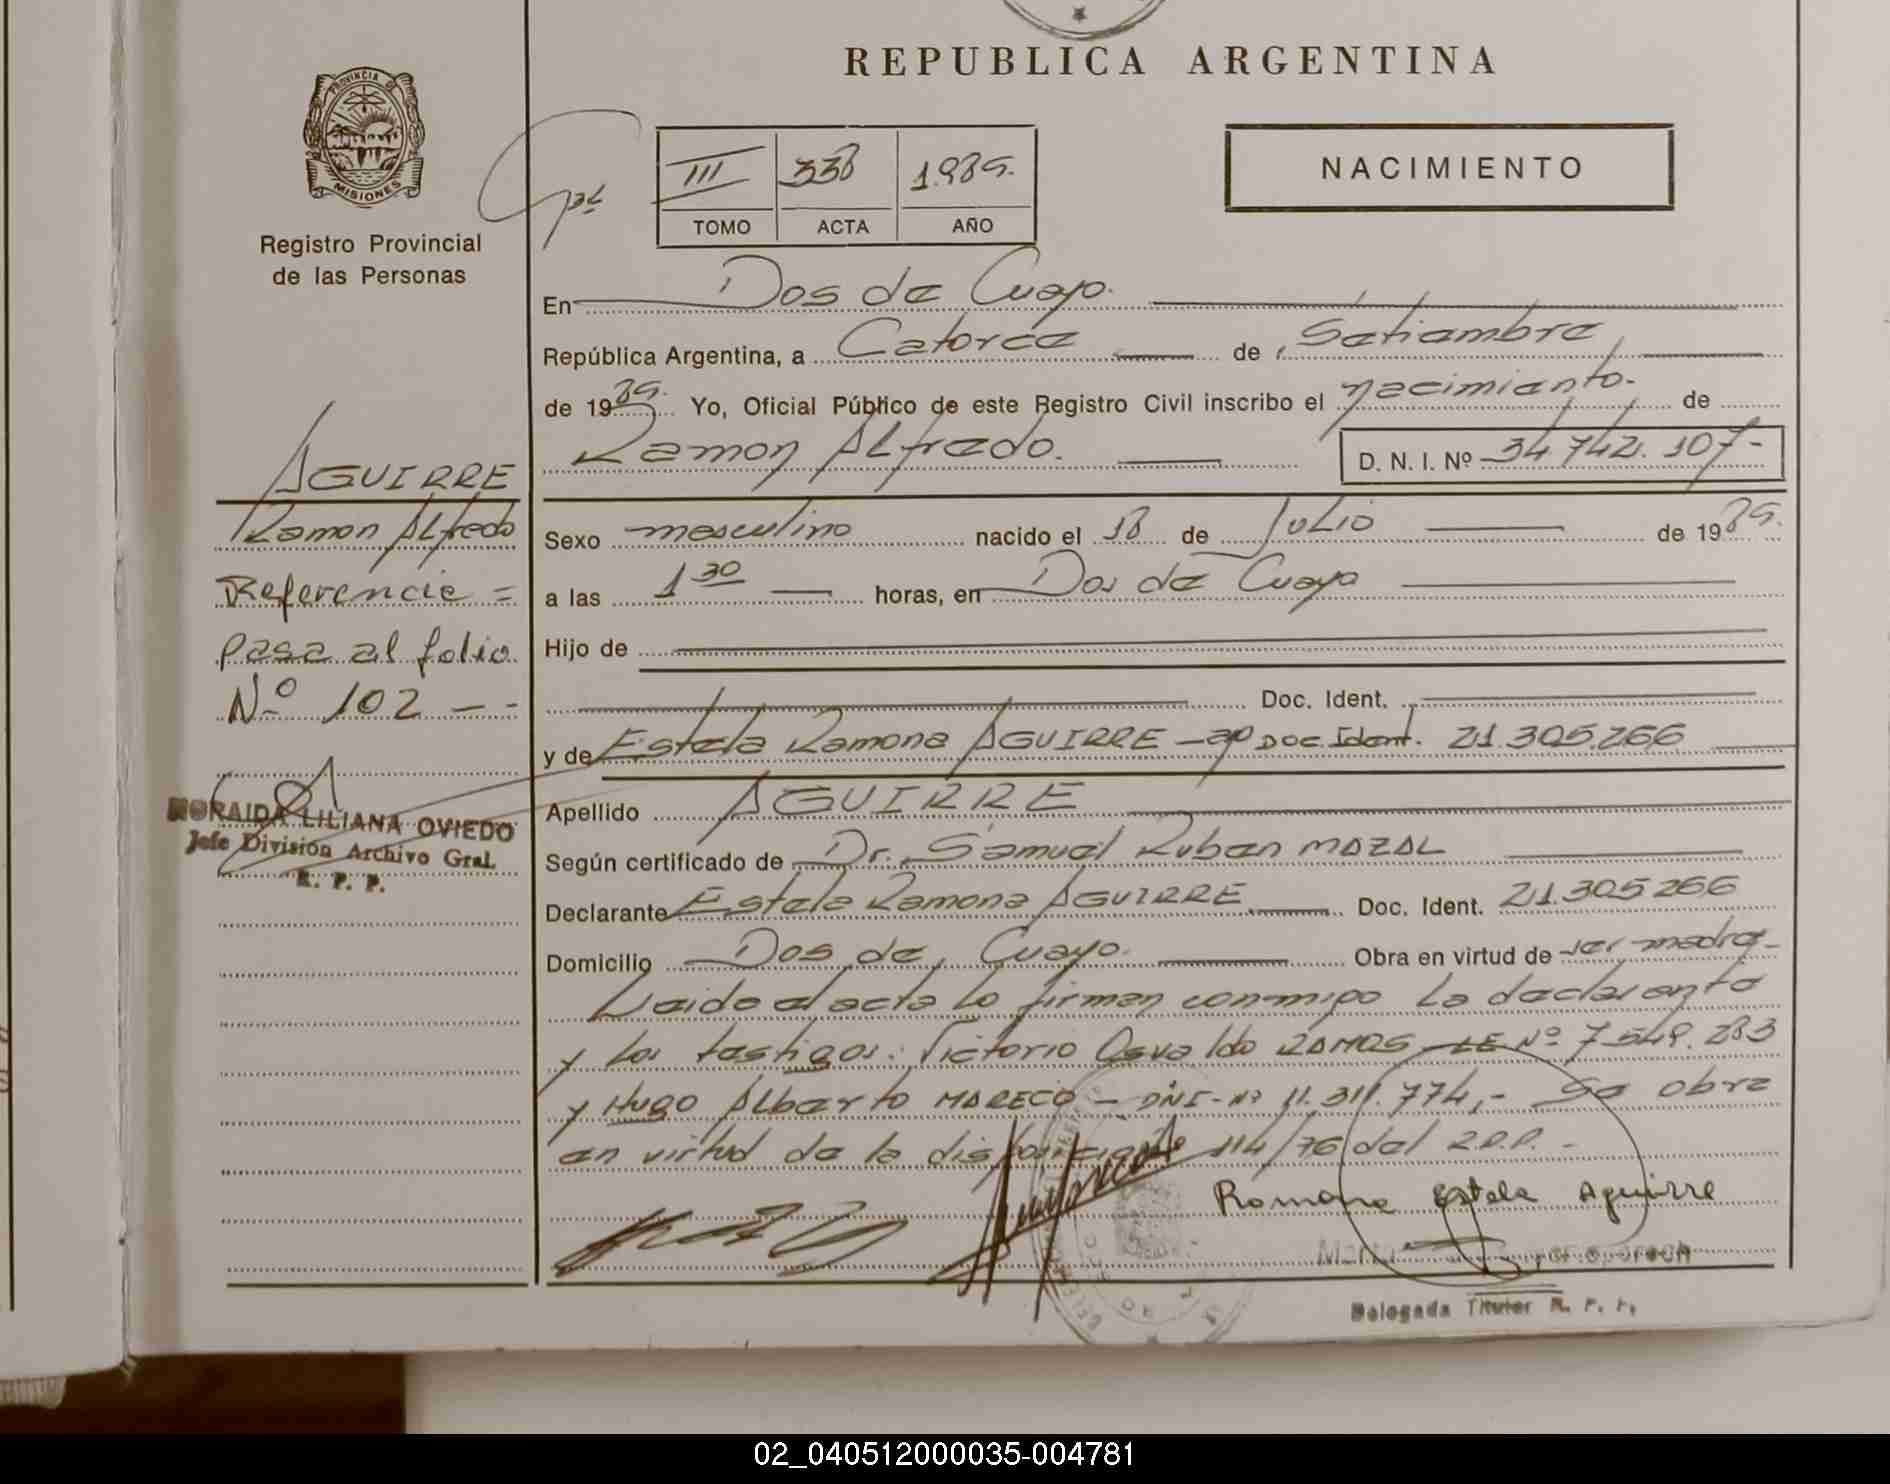 REPUBLICA ARGENTINA
PROVINCIA DE
MISIONES
Registro Provincial
de las Personas
III 338 1.989.
TOMO ACTA AÑO
NACIMIENTO
En Dos de Mayo.
República Argentina, a Catorce de Setiembre
de 1989. Yo, Oficial Público de este Registro Civil inscribo el nacimiento. de
Ramon Alfredo. D. N. I. Nº 34.742.107-
AGUIRRE
Ramon Alfredo
Referencia =
pasa al folio
Nº 102 - -
NORAIDA LILIANA OVIEDO
Jefe División Archivo Gral.
R. P. P.
Sexo masculino nacido el 18 de Julio de 1989.
a las 1 30 horas, en Dos de Mayo
Hijo de
Doc. Ident.
y de Estela Ramona AGUIRRE Doc. Ident. 21.305.266
Apellido AGUIRRE
Según certificado de Dr. Samuel Ruben MAZAL
Declarante Estela Ramona AGUIRRE Doc. Ident. 21.305.266
Domicilio Dos de Mayo. Obra en virtud de ser madre-
Leida el acta lo firman conmigo la declarante
y los testigos: Victorio Osvaldo RAMOS LE Nº 7.549.283
y Hugo Alberto MARECO - DNI-Nº 11.311.774,- Se obra
en virtud de la disposición 114/76 del R.P.P. -
Romona Estela Aguirre
Delegada Titular R. P. P.
02_040512000035-004781